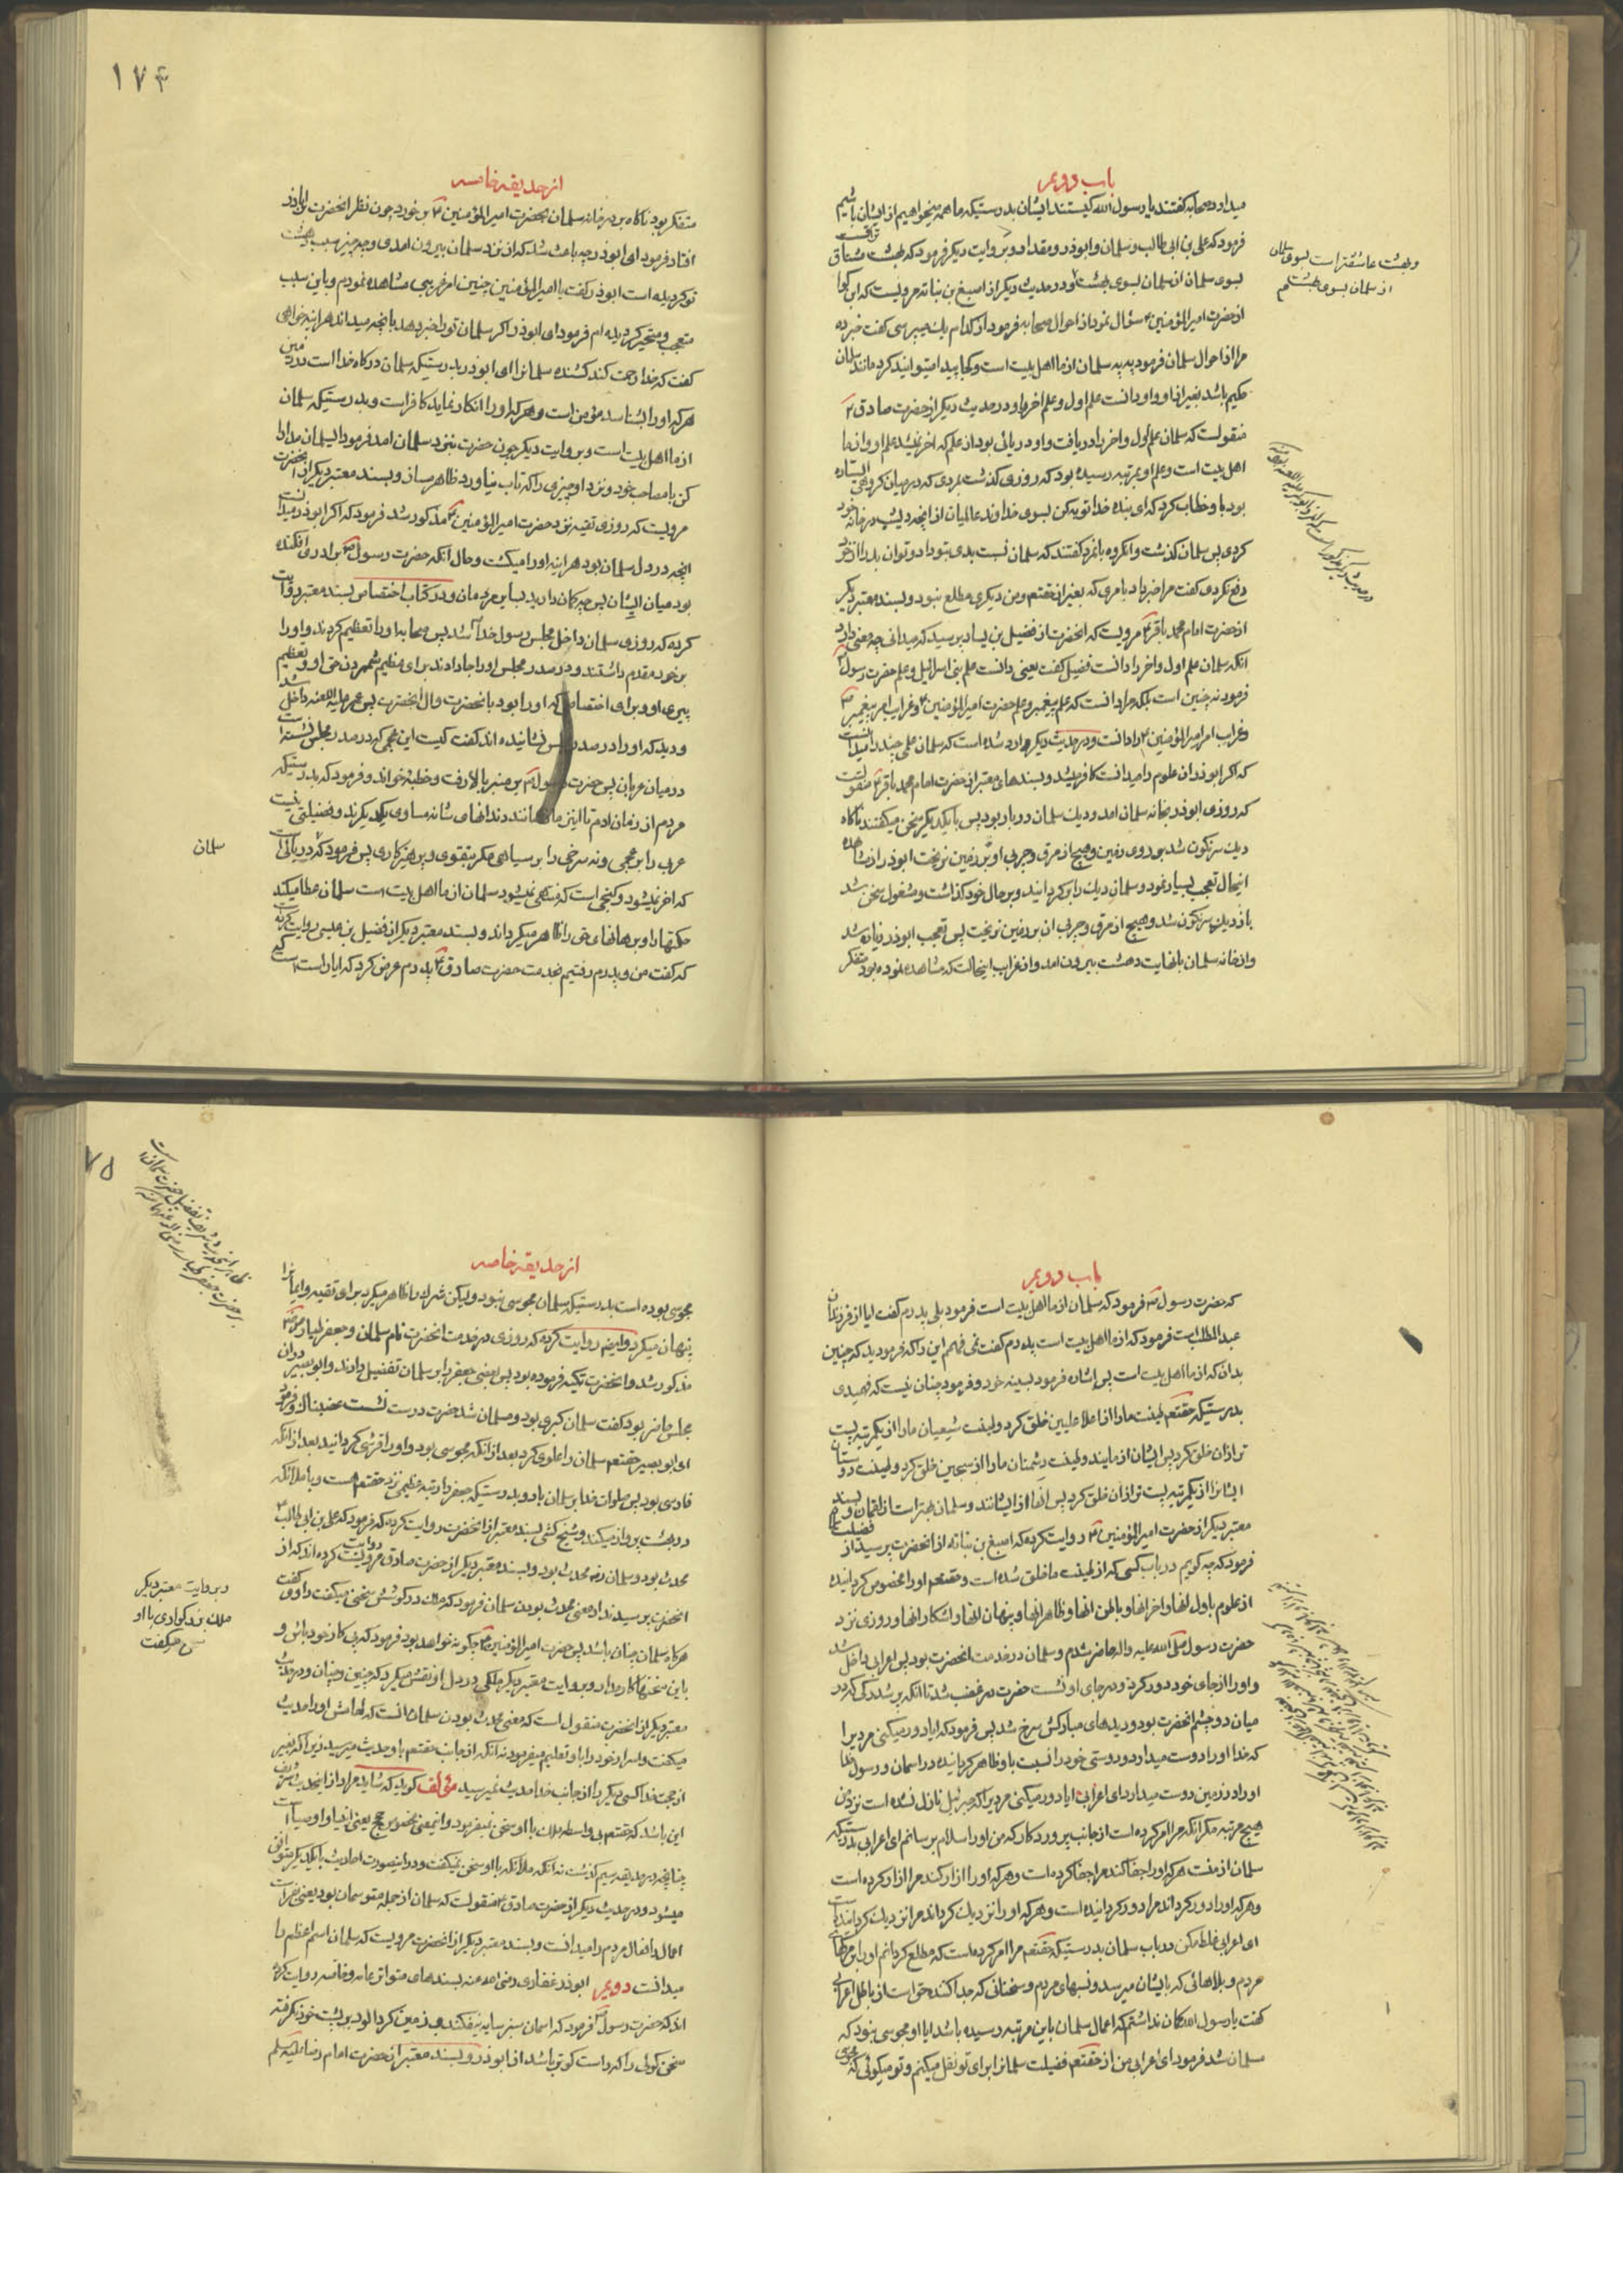 باب دویم
میداد صحابه گفتند یا رسول الله کیستند ایشان بدرستیکه ما همه میخواهیم از ایشان باشیم
فرمود که علی بن ابی طالب و سلمان و ابوذر و مقداد و بروایت دیگر فرمود که بهشت مشتاق تر است
بسوی سلمان از سلمان بسوی بهشت و در حدیث دیگر از اصبغ بن نباته مرویست که ابن کوا
از حضرت امیرالمؤمنین سؤال نمود از احوال صحابه فرمود از کدام یک میپرسی گفت خبر ده
مرا از احوال سلمان فرمود به به سلمان از ما اهل بیت است و کجا پیدا میتوانید کرد مانند سلمان
حکیم باشد بغیر از او و او دانست علم اول و علم اخر را و در حدیث دیگر از حضرت صادق ع
منقولست که سلمان علم اول و اخر را دریافت و او دریائی بود از علم که اخر نمیشد علم او و از ما
اهل بیت است و علم او بمرتبه رسیده بود که روزی گذشت بمردی که در میان گروهی ایستاده
بود باو خطاب کرد که ای بنده خدا توبه کن بسوی خداوند عالمیان از انچه دیشب در خانه خود
کردی پس سلمان گذشت و انگروه بانمرد گفتند که سلمان نسبت بدی بتو داد و تو ان بد را از خود
دفع نکردی گفت مرا خبر داد بامری که بغیر از حقتعم و من دیگری مطلع نبود و بسند معتبر دیگر
از حضرت امام محمد باقر ع مرویست که انحضرت از فضیل بن یسار پرسید که میدانی چه معنی دارد
انکه سلمان علم اول و اخر را دانست فضیل گفت یعنی دانست علم بنی اسرائیل و علم حضرت رسول
فرمود نه چنین است بلکه مراد انست که علم پیغمبر و علم حضرت امیرالمؤمنین و غرایب امر پیغمبر
و غرایب امر امیرالمؤمنین را دانست و در حدیث دیگر وارد شده است که سلمان علمی چند را میدانست
که اگر ابوذر ان علوم را میدانست کافر میشد و بسندهای معتبر از حضرت امام محمد باقر ع منقولست
که روزی ابوذر بخانه سلمان امد و دیک سلمان در بار بود پس با یکدیگر سخن میگفتند ناگاه
دیک سرنگون شد بر روی زمین و هیچ از مرق و چربی او بر زمین نریخت ابوذر از مشاهده
اینحال تعجب بسیار نمود و سلمان دیک را برگردانید و بر حال خود گذاشت و مشغول سخن شد
باز دیک سرنگون شد و هیچ از مرق و چربی ان بر زمین نریخت پس تعجب ابوذر زیاده شد
و از خانه سلمان بانهایت دهشت بیرون امد و از غرایب اینحالت که مشاهده نموده بود متفکر
و بهشت عاشقتر است بسوی سلمان
از سلمان بسوی بهشت
١٧٤
از حدیقه خامسه
متفکر بود ناگاه بر در خانه سلمان بحضرت امیرالمؤمنین ع برخورد چون نظر انحضرت بر ابوذر
افتاد فرمود ای ابوذر چه باعث شد که از نزد سلمان بیرون امدی و چه چیز سبب دهشت
تو گردیده است ابوذر گفت یا امیرالمؤمنین چنین امر غریبی مشاهده نمودم و باین سبب
متعجب و متحیر گردیده ام فرمود ای ابوذر اگر سلمان تو را خبر دهد بانچه میداند هراینه خواهی
گفت که خدا رحمت کند کشنده سلمانرا ای ابوذر بدرستیکه سلمان درگاه خدا است در زمین
هر که او را بشناسد مؤمن است و هر که او را انکار نماید کافر است و بدرستیکه سلمان
از ما اهل بیت است و بروایت دیگر چون حضرت بنزد سلمان امد فرمود ایسلمان مدارا
کن با مصاحب خود و نزد او چیزی را که تاب نیاورد ظاهر مساز و بسند معتبر دیگر از انحضرت
مرویست که روزی تقیه نزد حضرت امیرالمؤمنین مذکور شد فرمود که اگر ابوذر میدانست
انچه در دل سلمان بود هراینه او را میکشت و حال انکه حضرت رسول ص برادری افکنده
بود میان ایشان پس چه گمان دارید بسایر مردمان و در کتاب اختصاص بسند معتبر روایت
کرده که روزی سلمان داخل مجلس رسول خدا شد پس صحابه او را تعظیم کردند و او را
بر خود مقدم داشتند و در صدر مجلس او را جا دادند برای عظیم شمردن حق او و تعظیم
پیری او و برای اختصاصی که او را بود بانحضرت و ال انحضرت پس عمر علیه اللعنه داخل شد
و دید که او را در صدر مجلس نشانیده اند گفت کیست این عجمی که در صدر مجلس نشسته است
در میان عربان پس حضرت رسول ص بر منبر بالا رفت و خطبه خواند و فرمود که بدرستیکه
مردم از زمان ادم تا این زمان مانند دندانهای شانه مساوی یکدیگرند و فضیلتی نیست
عربی را بر عجمی و نه سرخی را بر سیاهی مگر بتقوی و پرهیزکاری پس فرمود که دریائی است
که اخر نمیشود و گنجی است که منتهی نمیشود سلمان از ما اهل بیت است سلمان عطا میکند
حکمتها را و برهانهای حق را ظاهر میگرداند و بسند معتبر دیگر از فضیل بن عیسی روایت کرده است
که گفت من و پدرم رفتیم بخدمت حضرت صادق ع پدرم عرض کرد که ایا راست است
سلمان
باب دویم
که حضرت رسول ص فرمود که سلمان از ما اهل بیت است فرمود بلی پدرم گفت ایا از فرزندان
عبدالمطلب است فرمود که از ما اهل بیت است پدرم گفت نمی فهمم این را که فرمودید که چنین
بدان که از ما اهل بیت است پس اشاره فرمود بسینه خود و فرمود چنان نیست که فهمیدی
بدرستیکه حقتعم طینت ما را از اعلا علیین خلق کرد و طینت شیعیان ما را از یکمرتبه پست
تر از ان خلق کرد پس ایشان از مایند و طینت دشمنان ما را از سجین خلق کرد و طینت دوستان
ایشانرا از یکمرتبه پست تر از ان خلق کرد پس انها از ایشانند و سلمان بهتر است از لقمان و بسند
معتبر دیگر از حضرت امیرالمؤمنین روایت کرده که اصبغ بن نباته از انحضرت پرسید از فضیلت سلمان
فرمود که چه گویم در باب کسی که از طینت ما خلق شده است و حقتعم او را مخصوص گردانیده
از علوم باول انها و اخر انها و باطن انها و ظاهر انها و پنهان انها و اشکار انها و روزی نزد
حضرت رسول صلی الله علیه واله حاضر شدم و سلمان در خدمت انحضرت بود پس اعرابی داخل شد
و او را از جای خود دور کرد و در جای او نشست حضرت در غضب شد تا انکه پر شد رگی که در
میان دو چشم انحضرت بود و دیدهای مبارکش سرخ شد پس فرمود که ایا دور میکنی مردیرا
که خدا او را دوست میدارد و دوستی خود را نسبت باو ظاهر گردانیده در اسمان و رسول خدا
او را در زمین دوست میدارد ای اعرابی ایا دور میکنی مردیرا که جبرئیل نازل نشده است نزد من
هیچ مرتبه مگر انکه مرا امر کرده است از جانب پروردگار که من او را سلام برسانم ای اعرابی بدرستیکه
سلمان از منست هر که او را جفا کند مرا جفا کرده است و هر که او را ازار کند مرا ازار کرده است
و هر که او را دور گرداند مرا دور گردانیده است و هر که او را نزدیک گرداند مرا نزدیک گردانیده است
ای اعرابی غلط مکن در باب سلمان بدرستیکه حقتعم مرا امر کرده است که مطلع گردانم او را بر مرگهای
مردم و بلاهائی که بایشان میرسد و نسبهای مردم و سخنانی که جدا کننده حق است از باطل اعرابی
گفت یا رسول الله گمان نداشتم که اعمال سلمان باین مرتبه رسیده باشد ایا او مجوسی نبود که
مسلمان شد فرمود ای اعرابی من از حقتعم فضیلت سلمانرا برای تو نقل میکنم و تو میگوئی که مجوسی
٧٥
از حدیقه خامسه
مجوسی بوده است بدرستیکه سلمان مجوسی نبود و لیکن شرک را ظاهر میکرد برای تقیه و ایمانرا
پنهان میکرد و ایضا روایت کرده که روزی در خدمت انحضرت نام سلمان و جعفر طیار
مذکور شد و انحضرت تکیه فرموده بود پس بعضی جعفر را بر سلمان تفضیل دادند و ابو بصیر در ان
مجلس حاضر بود گفت سلمان گبری بود و مسلمان شد حضرت درست نشست غضبناک و فرمود
ای ابو بصیر حقتعم سلمان را علوی کرد بعد از انکه مجوسی بود و او را قرشی گردانید بعد از انکه
فارسی بود پس صلوات خدا بر سلمان باد و بدرستیکه جعفر را رتبه عظیمی نزد حقتعم هست و با ملائکه
در بهشت پرواز میکند و شیخ کشی بسند معتبر از انحضرت روایت کرده که فرمود که علی بن ابی طالب
محدث بود و سلمان رض محدث بود و بسند معتبر دیگر از حضرت صادق ع روایت کرده اند که از
انحضرت پرسیدند از معنی محدث بودن سلمان فرمود که ملک در گوشش سخن میگفت راوی گفت
هرگاه سلمان چنان باشد پس حضرت امیرالمؤمنین چگونه خواهد بود فرمود که پی کار خود باش و
باین سخنها کار مدار و بروایت معتبر دیگر ملکی در دل او نقش میکرد که چنین و چنان و در حدیث
معتبر دیگر از انحضرت منقول است که معنی محدث بودن سلمان انست که امامش او را حدیث
میگفت و اسرار خود را باو تعلیم میفرمود نه انکه از جانب حقتعم باو حدیث میرسید زیرا که بغیر
از حجت خدا کسی دیگر را از جانب خدا حدیث نمیرسد مؤلف گوید که شاید مراد از اینحدیث شریف
این باشد که حقتعم بی واسطه ملک با او سخن نمیفرمود و اینمعنی مخصوص حجج یعنی انبیا و اوصیا است
چنانچه در حدیقه سیم گذشت نه انکه ملائکه با او سخن نمیگفت و در اینصورت احادیث با یکدیگر موافق
میشود و در حدیث دیگر از حضرت صادق ع منقولست که سلمان از جمله متوسمان بود یعنی بفراست
اعمال و افعال مردم را میدانست و بسند معتبر دیگر از انحضرت مرویست که سلمان اسم اعظم را
میدانست دویم ابوذر غفاری رضی الله عنه بسندهای متواتر عامه و خاصه روایت کرده
اند که حضرت رسول ص فرمود که اسمان سبز سایه نیفکنده و زمین گردالود بر پشت خود نگرفته
سخن گوئی را که راست گوتر باشد از ابوذر و بسند معتبر از حضرت امام رضا علیه السلم
و بروایت معتبر دیگر
ملک بزرگواری با او
سخن میگفت